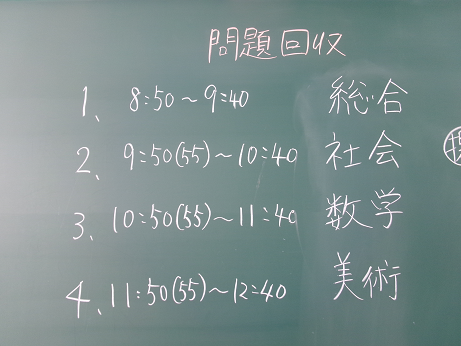 問題回収
1、 8:50~9:40 総合
2、 9:50(55)~10:40 社会
3、 10:50(55)~11:40 数学
4、 11:50(55)~12:40 美術